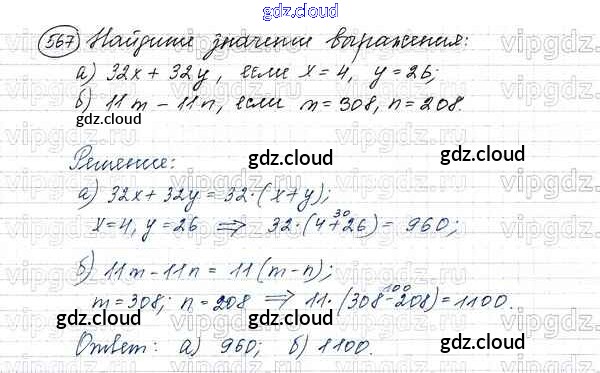 gdz.cloud
567 Найдите значение выражения:
а) 32x + 32y, если x = 4, y = 26;
б) 11m - 11n, если m = 308, n = 208.
gdz.cloud gdz.cloud
Решение:
gdz.cloud
а) 32x + 32y = 32·(x+y);
30
x=4, y=26 ⇒ 32·(4+26) = 960;
gdz.cloud gdz.cloud
б) 11m - 11n = 11(m-n);
100
m=308; n=208 ⇒ 11·(308-208) = 1100.
gdz.cloud gdz.cloud
Ответ: а) 960; б) 1100.
gdz.cloud